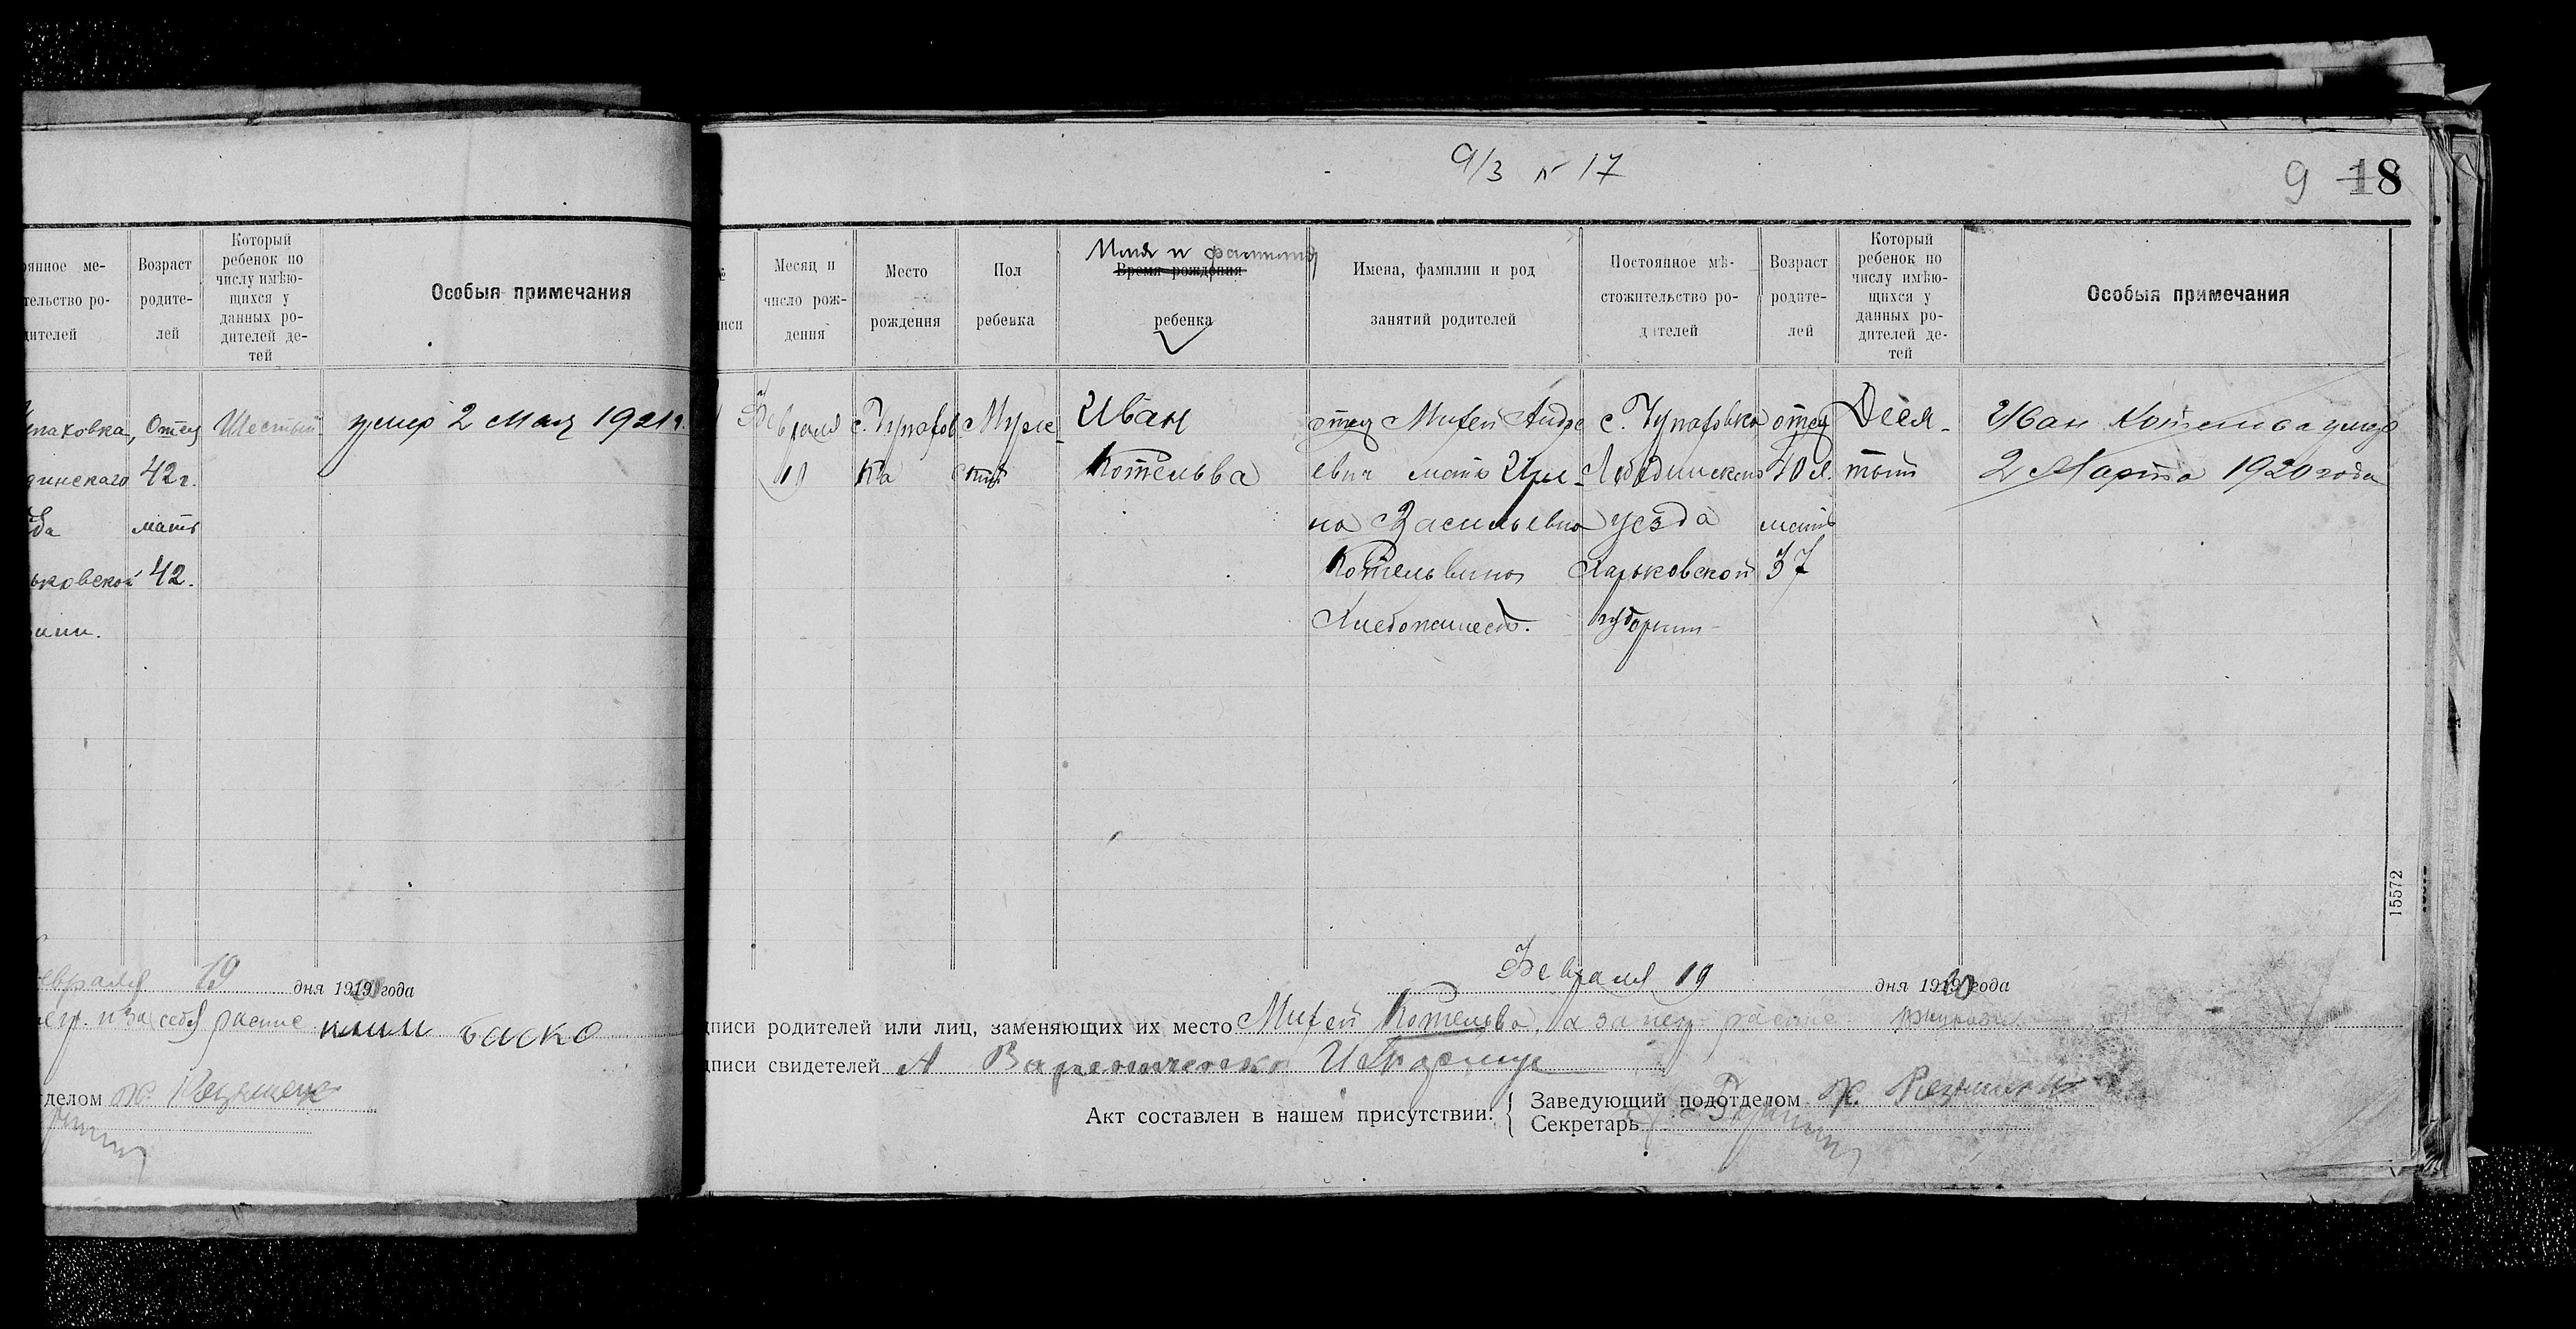 9/3 N 17
9 18
янное ме-
тельство ро-
дителей
Возраст
родите-
лей
Который
ребенок по
числу имѣю-
щихся у
данных ро-
дителей де-
тей
Особыя примечания
паковка,
динскаго
да
ьковской
Отец
42 г.
мать
42.
Шестый
умер 2 Мая 1921 г.
евраля 19 дня 1919 года
за себя роспис
Баско
делом
иси
Месяц и
число рож-
дения
Место
рождения
Пол
ребенка
Имя и фамилия
Время рождения
ребенка
Имена, фамилии и род
занятий родителей
Постоянное мѣ-
стожительство ро-
дителей
Возраст
родите-
лей
Который
ребенок по
числу имѣю-
щихся у
данных ро-
дителей де-
тей
Особыя примечания
Февраля
19
с. Чупахов
ка
Муже
ский
Иван
Котельва
отец Митей Андре
евич мать Ири-
на Васильевна
Котельвина
Хлебопашест.
с. Чупаховка
Лебединскаго
уезда
Харьковской
губернии
отец
40 л.
мать
37
Деся-
тый
Иван Котельва умер
2 Марта 1920 года
15572
Февраля 19 дня 1919 года
дписи родителей или лиц, заменяющих их место Митей Котельва, а за нег роспис
дписи свидетелей А
Акт составлен в нашем присутствии:
Заведующий подотделом
Секретарь